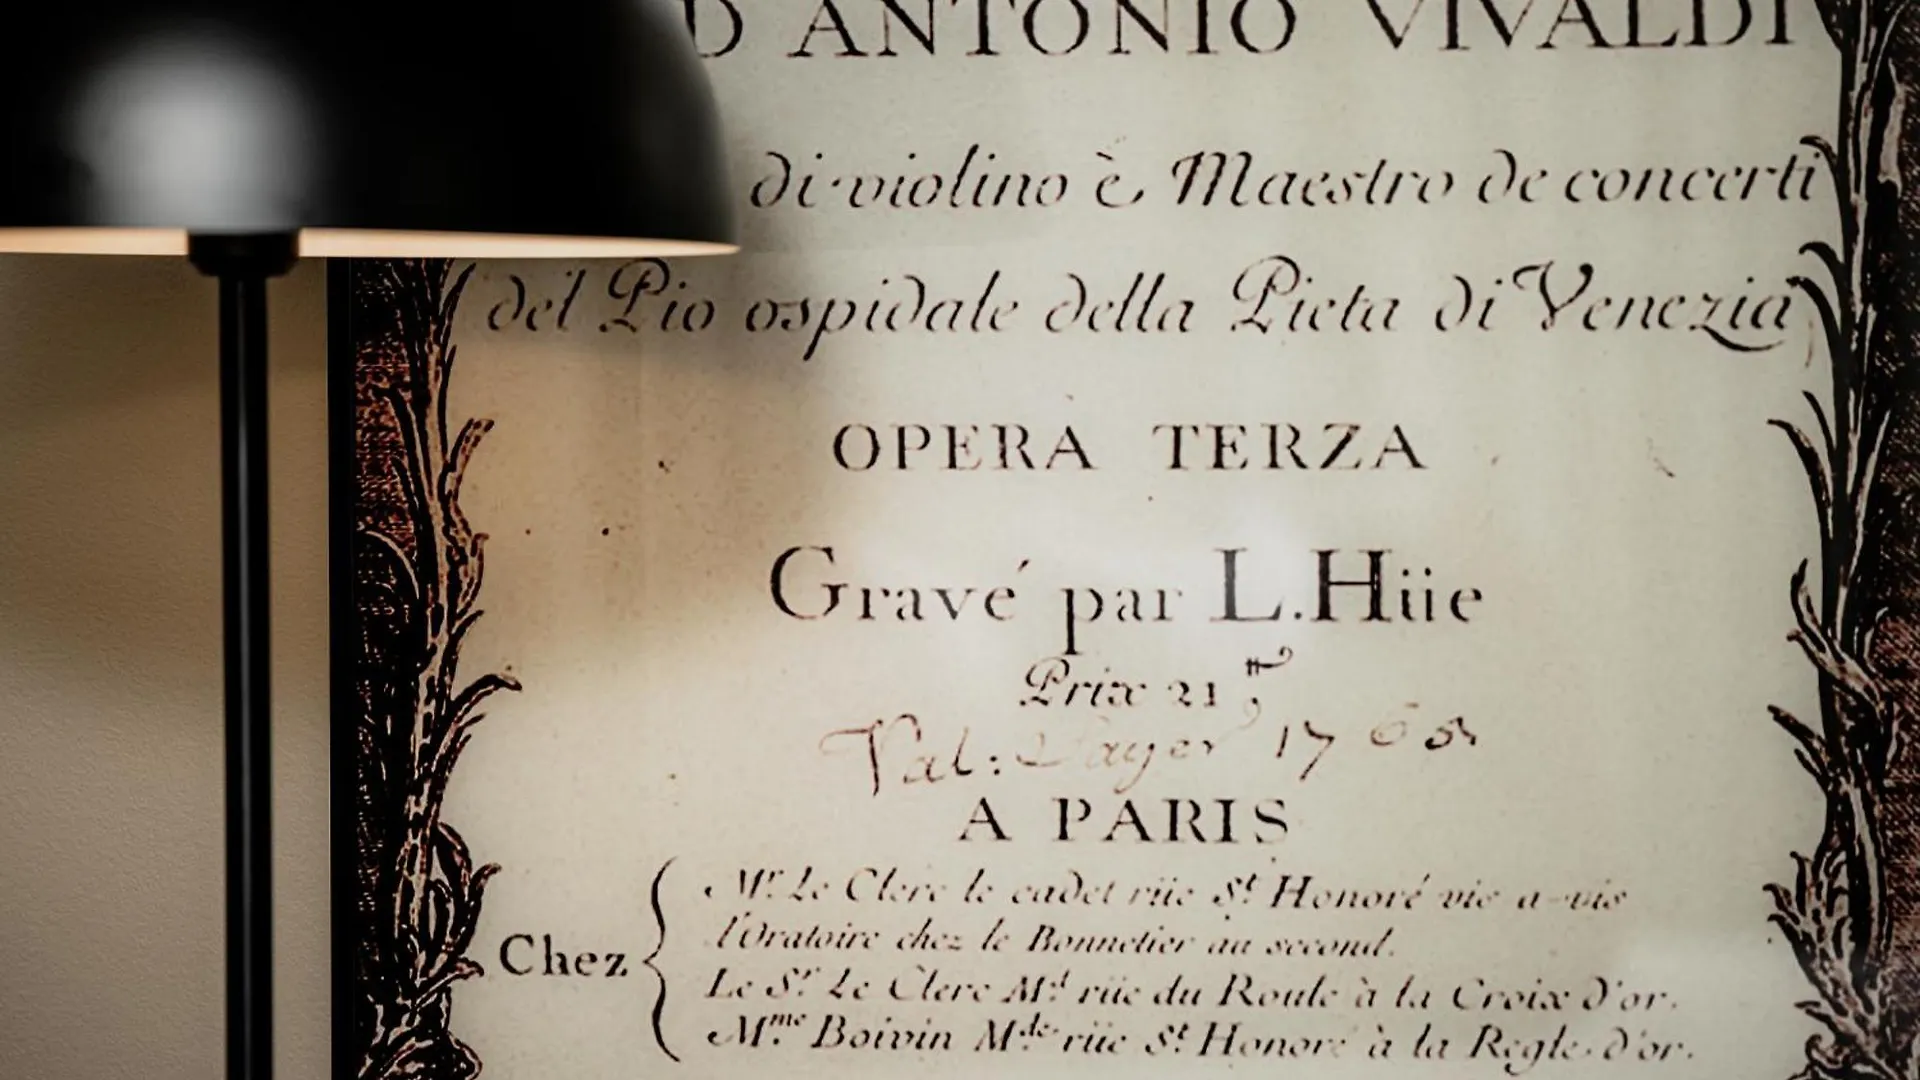 D ANTONIO VIVALDI
di violino è Maestro de concerti
del Pio ospidale della Pieta di Venezia
OPERA TERZA
Gravé par L.Hüe
Prix 21
Val: 1765
A PARIS
Chez
Mr. Le Clerc le cadet rüe St. Honoré vis a-vis
l'Oratoire chez le Bonnetier au second.
Le Sr. Le Clerc Md. rüe du Roule à la Croix d'or.
Mme. Boivin Mde. rüe St. Honoré à la Regle d'or.